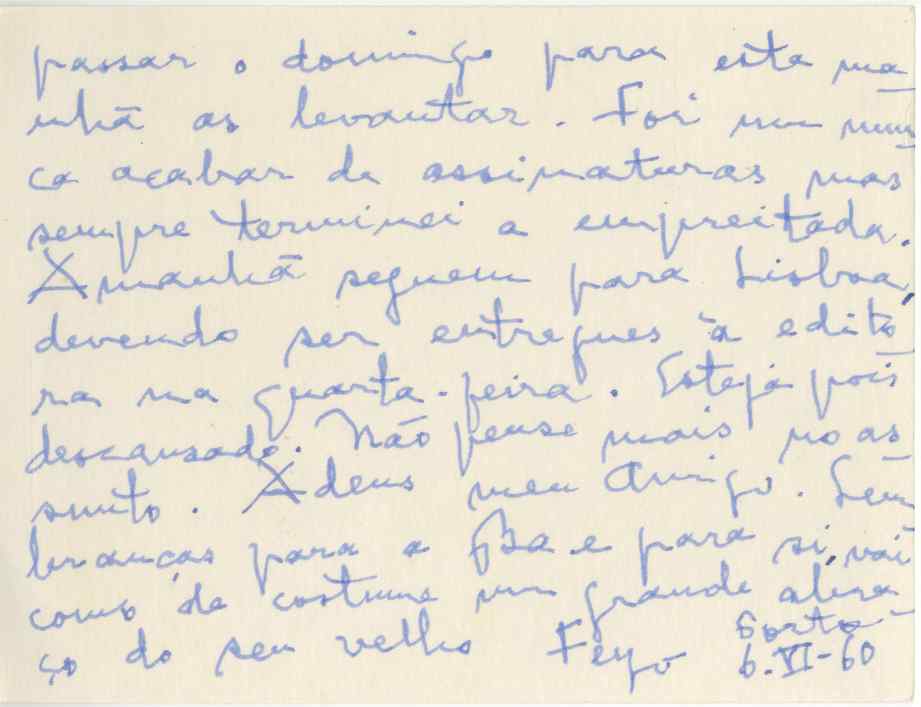 passar o domingo para esta ma
nhã as levantar. Foi um nun
ca acabar de assinaturas mas
sempre terminei a empreitada.
Amanhã seguem para Lisboa,
devendo ser entregues à edito
ra na quarta-feira. Esteja pois
descansado. Não pense mais no as
sunto. Adeus meu Amigo. Lem
branças para a Ba e para si, vai
como de costume um grande abra
ço do seu velho Feyo Porto
6-VI-60